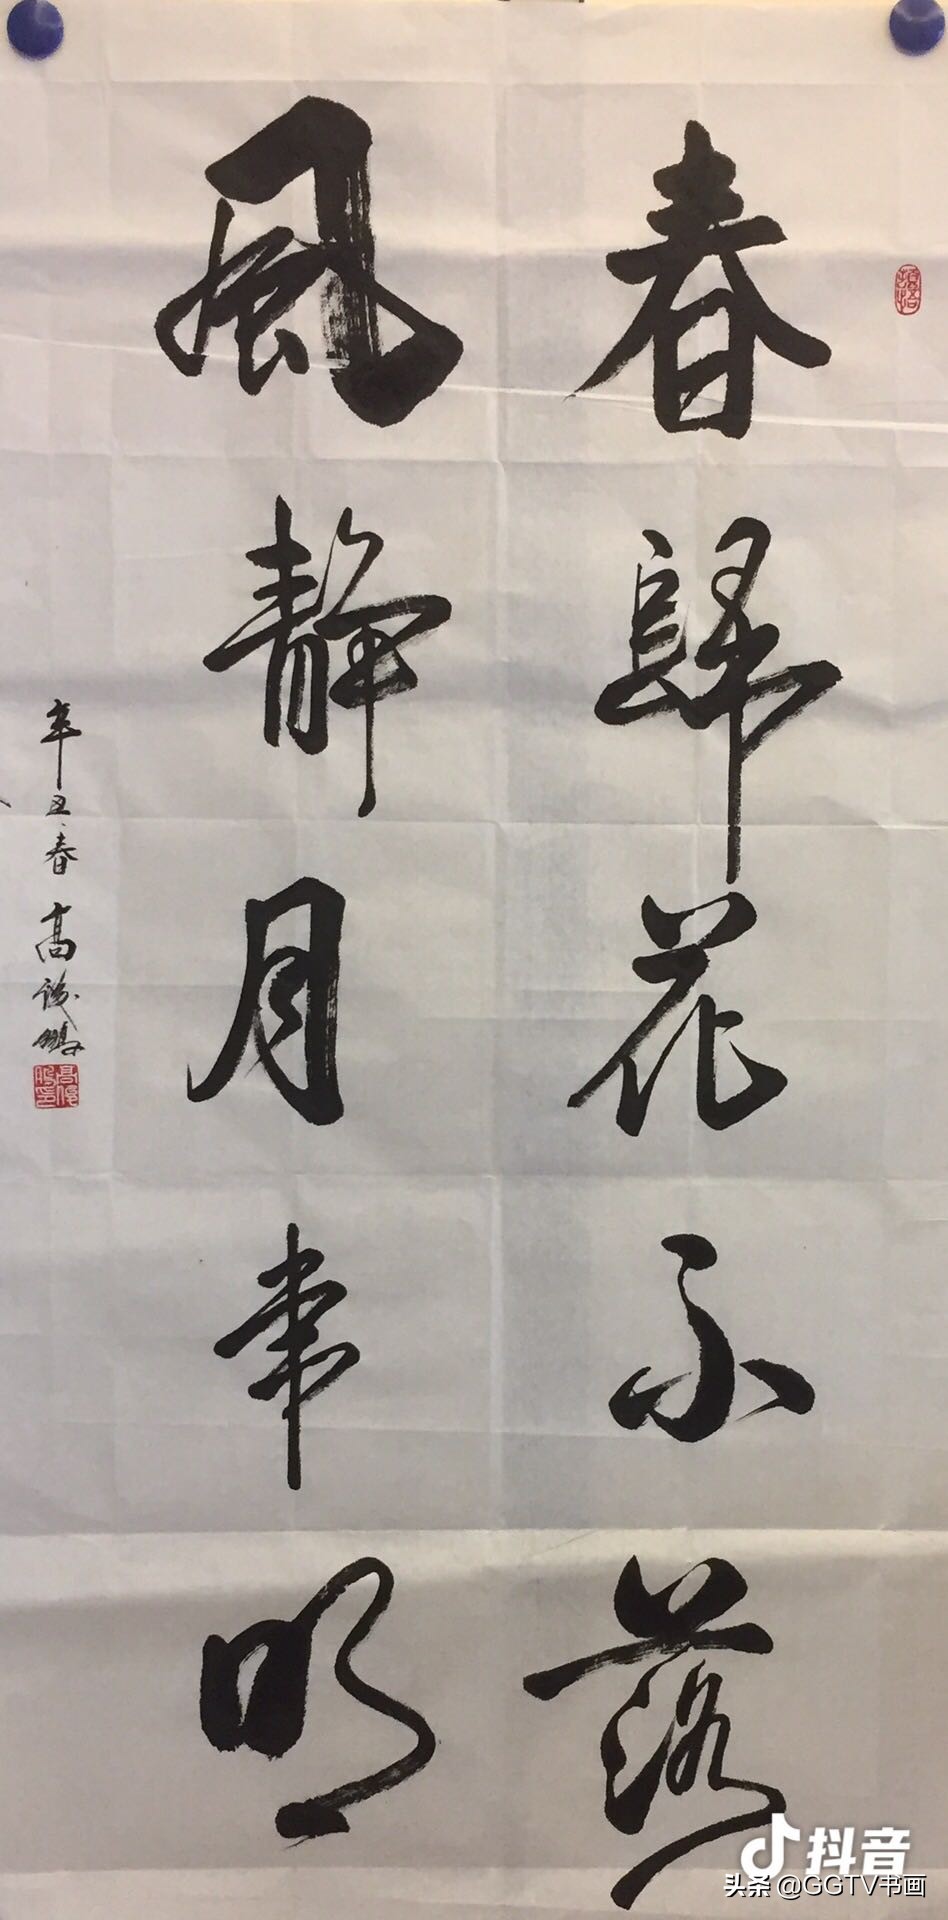 春歸花不落
風靜月常明
辛丑春 高 鵬
抖音
头条 @GGTV书画